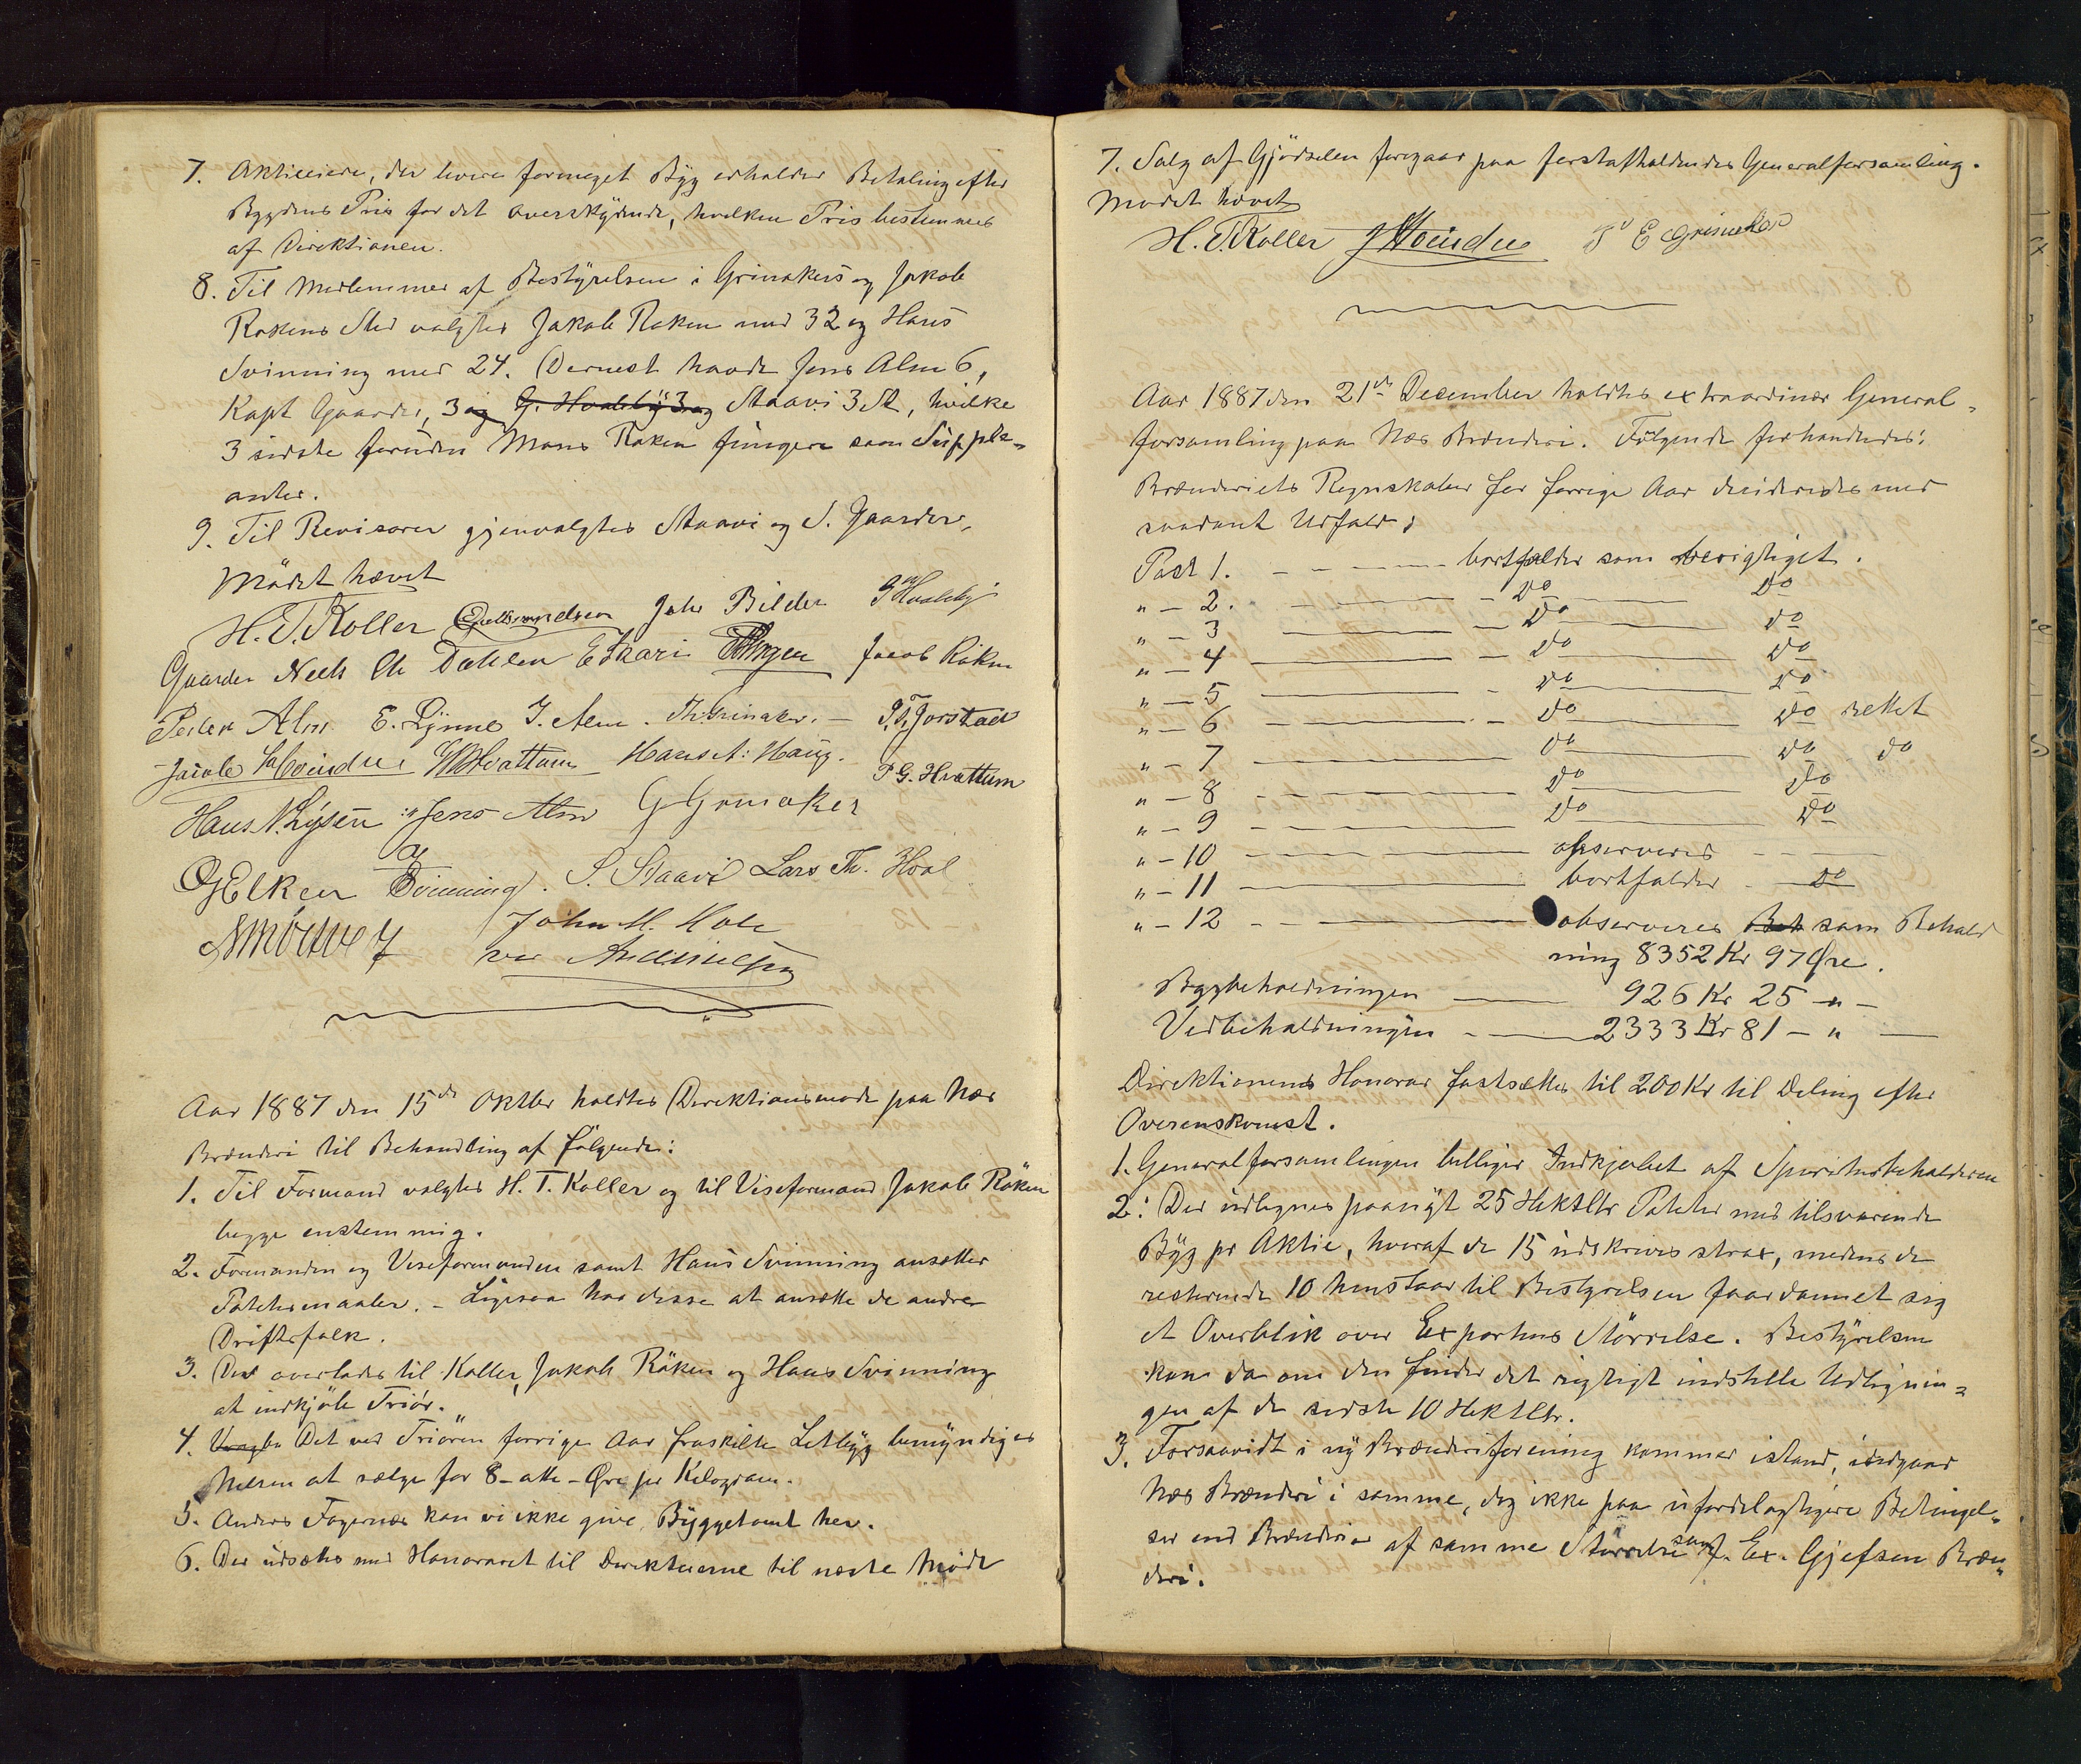 7. Aktieeiere, der levere formeget Byg erholder Betaling efter
Bygdens Pris for det overskydende, hvilken Pris bestemmes
af Direktionen.
8. Til Medlemmer af Bestyrelsen i Grinakers og Jakob
Røkens Sted valgtes Jakob Røken med 32 og Hans
Svinning med 24. Dernest havde Jens Alm 6,
Kapt Gaarder, 3 og G. Hvaleby 3 og Staavi 3 St, hvilke
3 sidste foruden Mons Røken fungere som Supple-
anter.
9. Til Revisorer gjenvalgtes Staavi og S. Gaarder,
Mödet hævet
H. T. Koller Gulbrandsen Johs Bilden G Hvaleby
Gaarder Neels Ch Dæhlen E Skari Jacob Röken
Peder Alm E. Lynne J. Alm. Th Grinaker. — P. Th. Jorstad
Jacob Hoindre Hvattum Hans A. Haug. P G. Hvattum
Hans N. Lysen Jens Alm G Grinaker
O G Elken Svinning. S. Staavi Lars Th. Hval
John M. Hole
ved
Aar 1887 den 15de Oktbr holdtes Direktionsmøde paa Næs
Brænderi til Behandling af følgende:
1. Til Formand valgtes H. T. Koller og til Viseformand Jakob Röken
begge enstemmig.
2. Formanden og Viseformanden samt Hans Svinning ansætter
Potetesmaaler. – Ligesaa har disse at ansætte de andre
Driftsfolk.
3. Det overlades til Koller, Jakob Röken og Hans Svinning
at indkjöbe Triör.
4. Det ved Triören forrige Aar fraskilte Letbyg bemyndiges
Nilsen at sælge for 8 - otte - Øre pr Kilogram.
5. Anders Fagernæs kan vi ikke give Byggetomt her.
6. Der udsættes med Honoraret til Direktørerne til næste Möde
7. Salg af Gjödselen foregaar paa førstafholdendes Generalforsamling.
Mødet hævet
H. T. Koller J Hoindre E Grinaker
Aar 1887 den 21de December holdtes extraordinær General-
forsamling paa Næs Brænderi. Følgende forhandledes:
Brænderiets Regnskaber for forrige Aar desideredes med
saadant Udfald:
Post 1. – – – bortfalder som berigtiget.
" – 2. – – – do – do
" – 3 – – do – do
" – 4 – – do – do
" – 5 – – do – do
" – 6 – – do – do rettet
" – 7 – – do – do do
" – 8 – – do – do
" – 9 – – do – do
" – 10 – – observeres – –
" – 11 – – bortfalder – do
" – 12 – – observeres Beh som Behold
ning 8352 Kr 97 Øre.
Bygbeholdningen — 926 Kr 25 – " –
Vedbeholdningen — 2333 Kr 81 – " –
Direktionens Honorar fastsættes til 200 Kr til Deling efter
Overenskomst.
1. Generalforsamlingen billiger Indkjøbet af Spiritusbeholderen
2. Der udlignes paanyt 25 Hektltr Poteter med tilsvarende
Byg pr Aktie, hvoraf de 15 udskrives strax, medens de
resterende 10 henstaar til Bestyrelsen faar dannet sig
et Overblik over Exportens Störrelse. Bestyrelsen
kan da om den finder det rigtigt indstille Udlignin-
gen af de sidste 10 Hektltr.
3. Forsaavidt i ny Brænderiforening kommer istand, indgaar
Næs Brænderi i samme, dog ikke paa ufordelagtigere Betingel-
ser end Brænderier af samme Størrelse som f. Ex. Gjefsen Bræn-
deri.